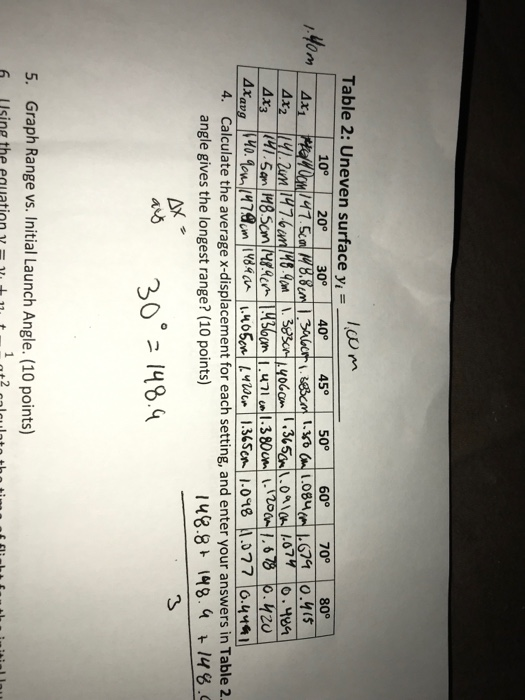 Table 2: Uneven surface yᵢ = 1.00 m
1.40m
10° 20° 30° 40° 45° 50° 60° 70° 80°
Δx₁ 147.5cm 148.8cm 1.084 cm 0.415
Δx₂ 141.2cm 147.6cm 148.9cm 1.383cm 1.406cm 1.365cm 1.091cm 1.074 0.489
Δx₃ 141.5cm 148.5cm 148.9cm 1.436cm 1.471cm 1.380cm 1.120cm 1.078 0.420
Δx avg 140.9cm 148.9cm 1.405cm 1.420cm 1.365cm 1.098 1.077 0.4491
4. Calculate the average x-displacement for each setting, and enter your answers in Table 2.
angle gives the longest range? (10 points)
Δx =
avg
30° = 148.9
148.8 + 148.9 + 148.
3
5. Graph Range vs. Initial Launch Angle. (10 points)
6. Using the equation